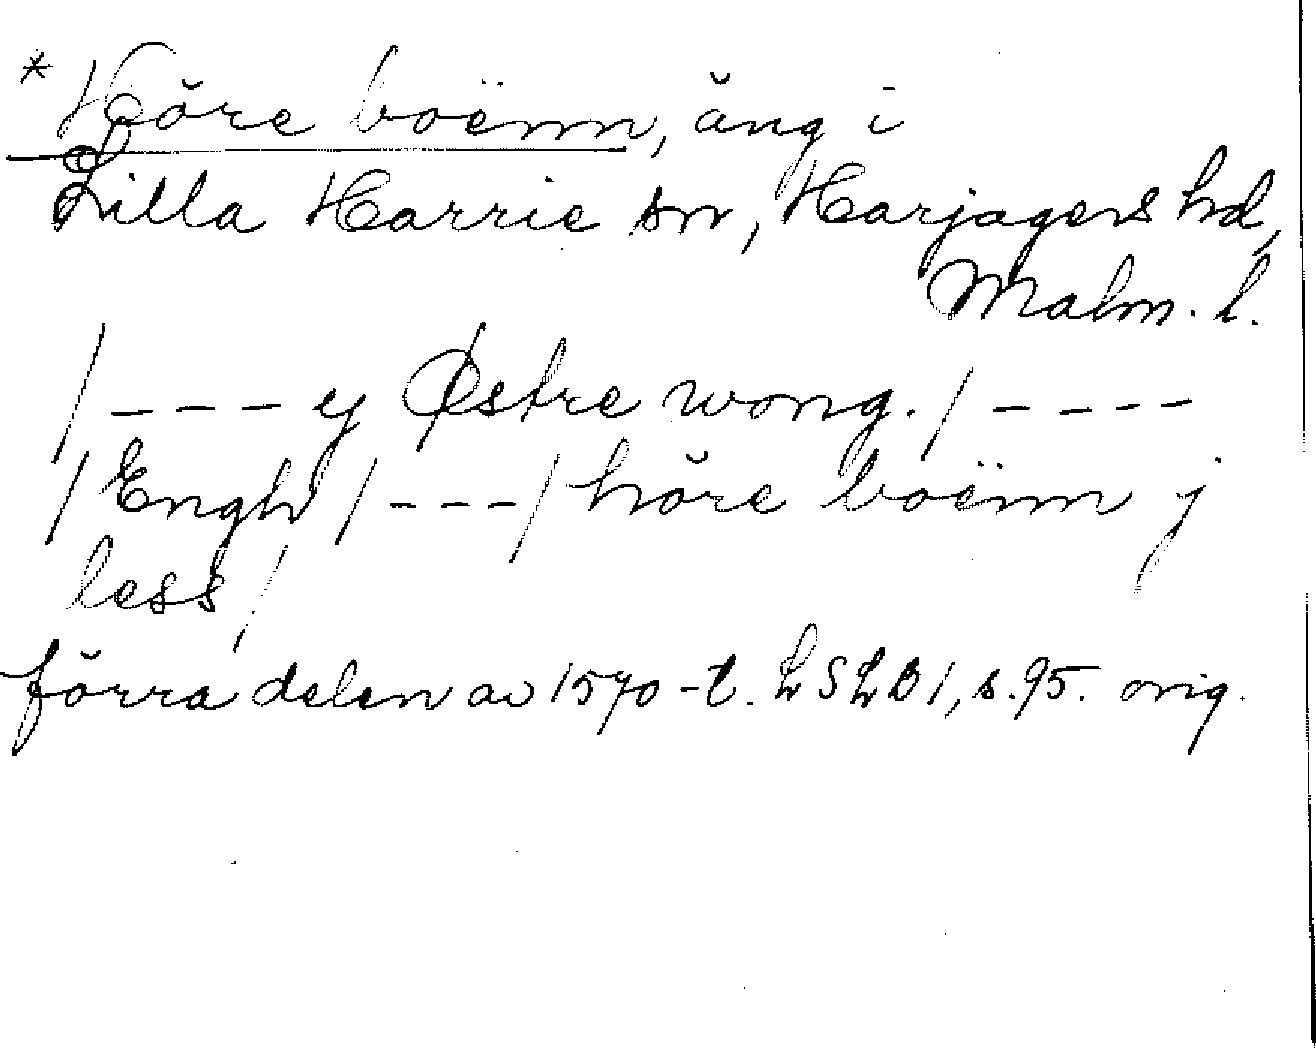 * Höre boënn, äng i
Lilla Harrie sn, Harjagers hd,
Malm. l.
/ - - - y Østre wong. / - - - -
/ Engh / - - - / höre boënn j
less /
förra delen av 1570-t. LSLB 1, s. 95. orig.